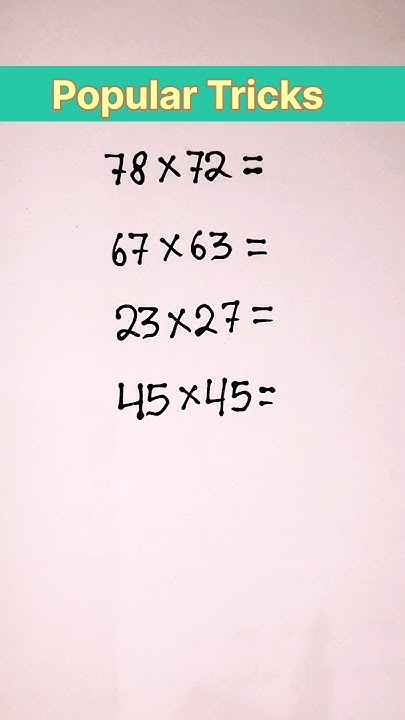 Popular Tricks
78×72=
67×63=
23×27=
45×45=